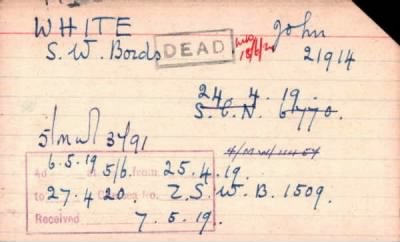 WHITE John
S. W. Bords DEAD 21914
24. 4. 19.
S. C. N. 6770.
5/MW/3791
4/MW/11454
6.5.19 5/6. from 25.4.19.
to 27.4.20. No. Z. S. W. B. 1509.
Received 7.5.19.